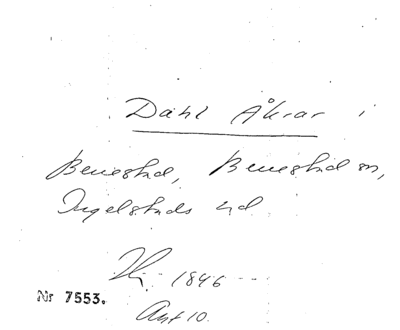 Dahl Åkrar i
Benestad, Benestad sn,
Ingelstads hd
1846
Nr 7553.
Ant 10.